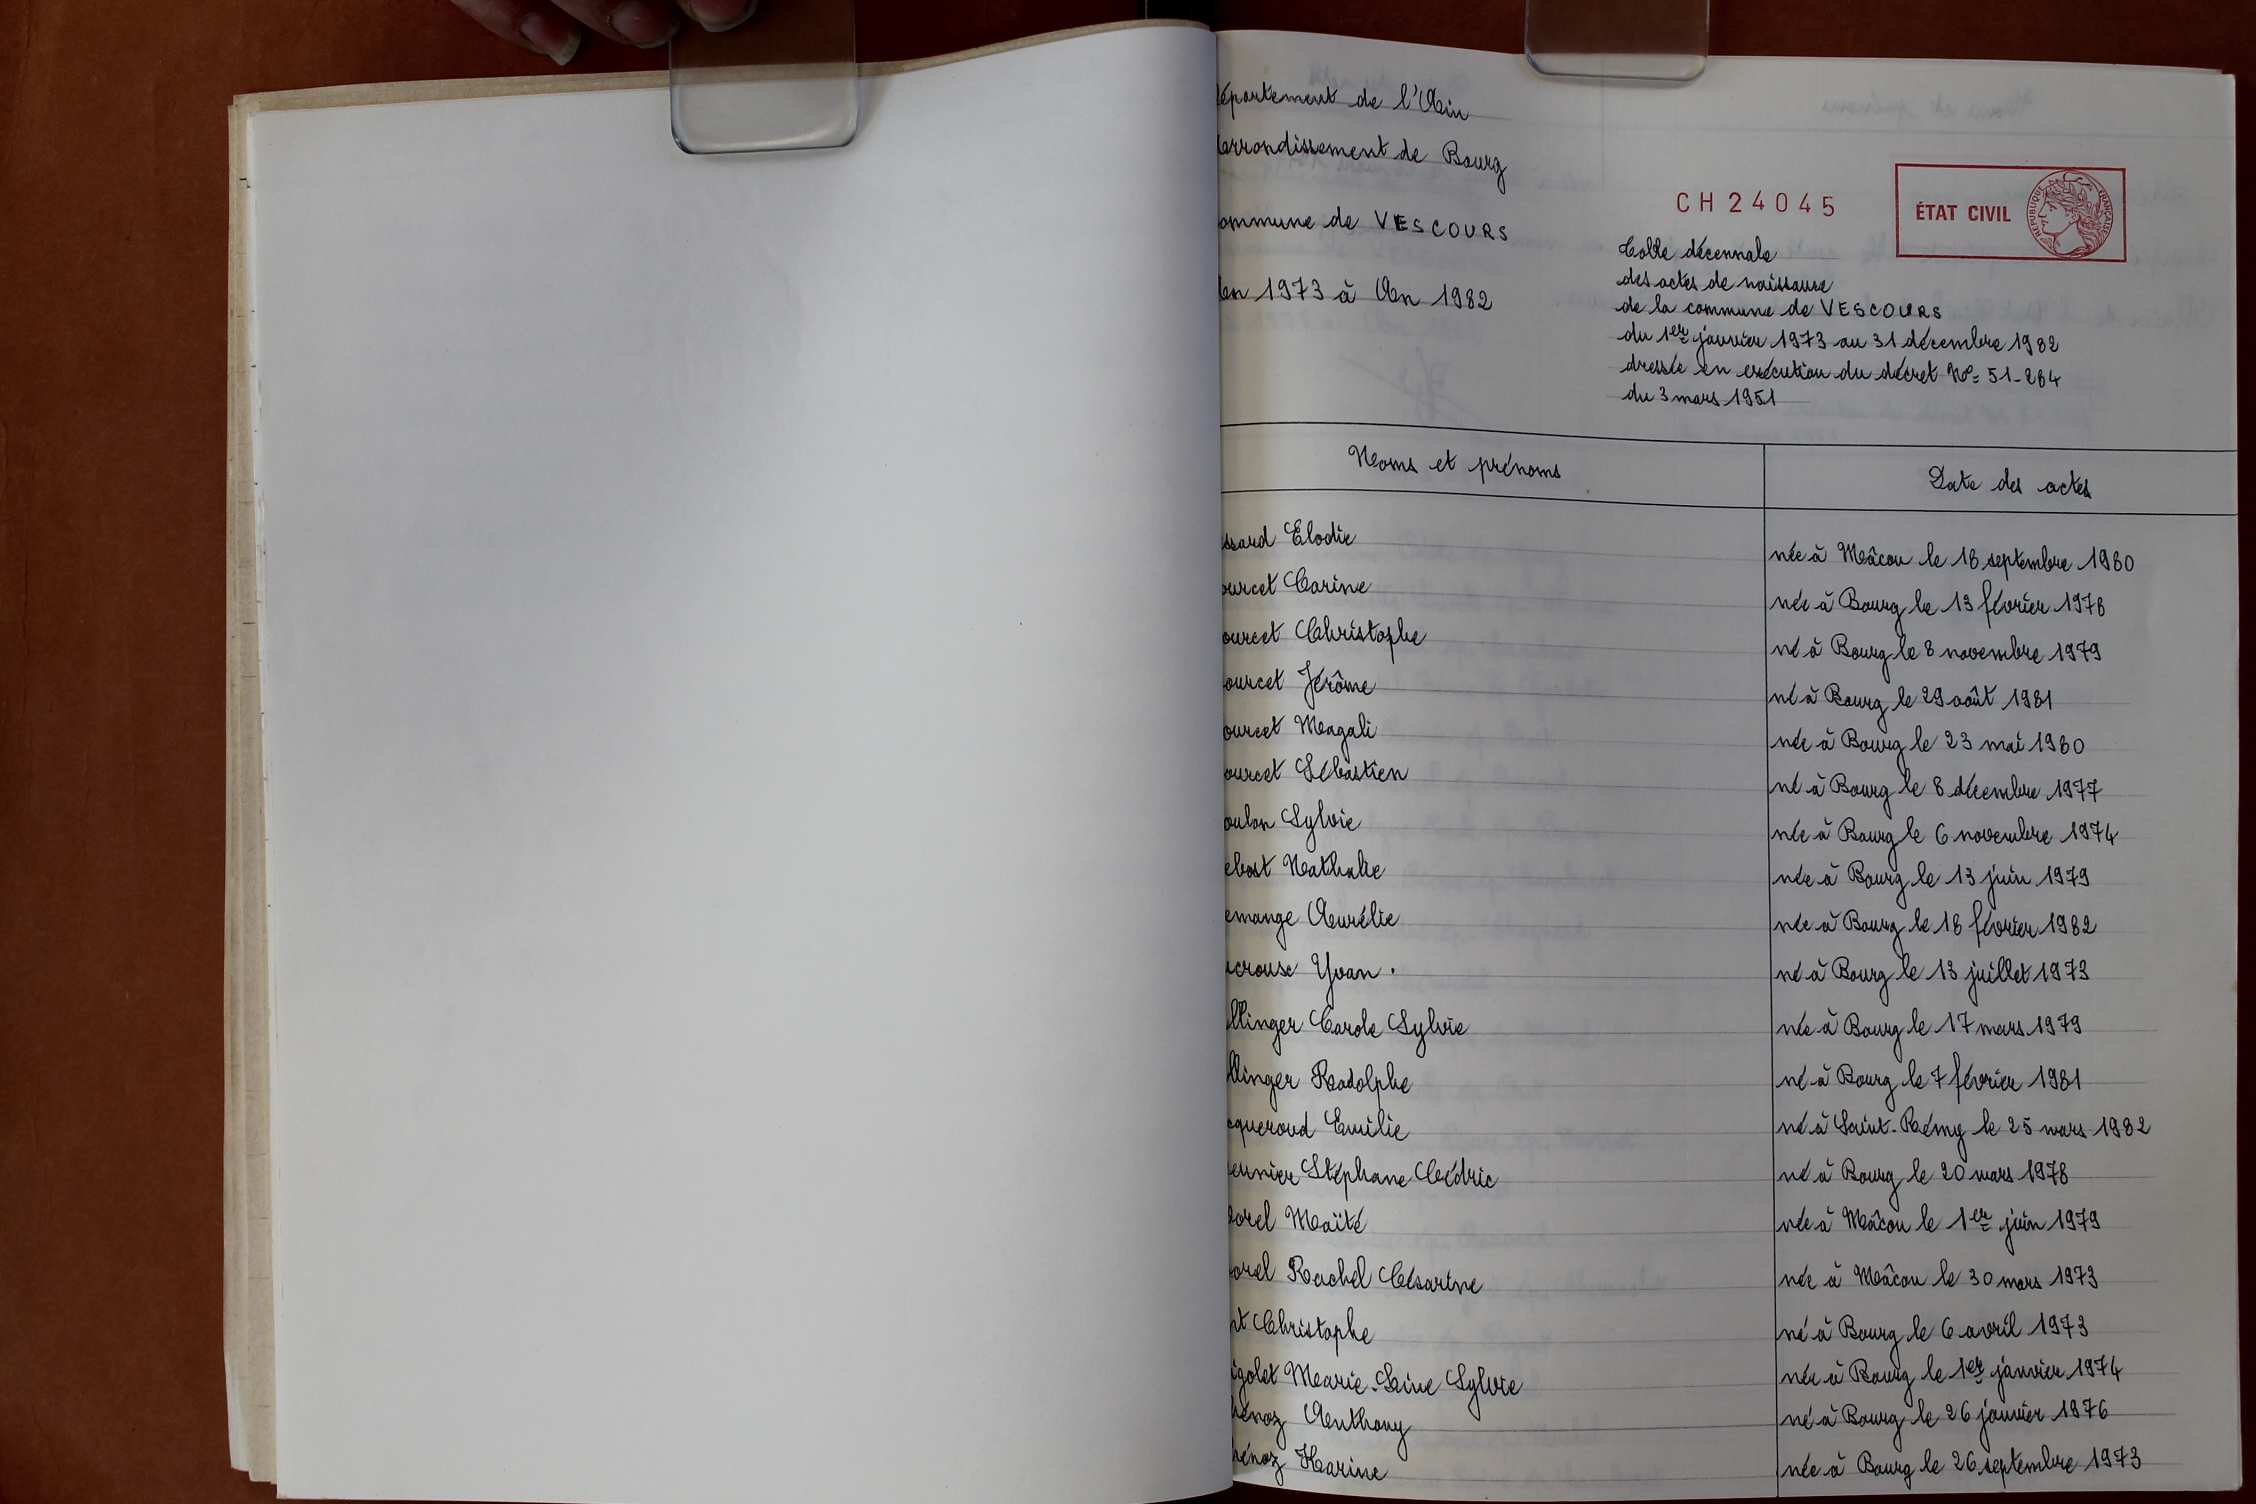 épartement de l'Ain
arrondissement de Bourg
ommune de VESCOURS
An 1973 à An 1982
CH24045
ÉTAT CIVIL
RÉPUBLIQUE FRANÇAISE
Table décennale
des actes de naissance
de la commune de VESCOURS
du 1er janvier 1973 au 31 décembre 1982
dressée en exécution du décret N° 51-284
du 3 mars 1951
Noms et prénoms
Date des actes
ssard Elodie
née à Mâcon le 18 septembre 1980
ourcet Carine
née à Bourg le 13 février 1978
ourcet Christophe
né à Bourg le 8 novembre 1979
ourcet Jérôme
né à Bourg le 29 août 1981
ourcet Magali
née à Bourg le 23 mai 1980
ourcet Sébastien
né à Bourg le 8 décembre 1977
oulon Sylvie
née à Bourg le 6 novembre 1974
ebost Nathalie
née à Bourg le 13 juin 1979
emange Aurélie
née à Bourg le 18 février 1982
ucrouse Yvan .
né à Bourg le 13 juillet 1973
llinger Carole Sylvie
née à Bourg le 17 mars 1979
llinger Rodolphe
né à Bourg le 7 février 1981
cqueroud Emilie
né à Saint-Rémy le 25 mars 1982
eunier Stéphane Cédric
né à Bourg le 20 mars 1978
orel Maïté
née à Mâcon le 1er juin 1979
orel Rachel Césarine
née à Mâcon le 30 mars 1973
nt Christophe
né à Bourg le 6 avril 1973
igolet Marie. Sylvie
née à Bourg le 1er janvier 1974
hénoz Anthony
né à Bourg le 26 janvier 1976
hénoz Karine
née à Bourg le 26 septembre 1973